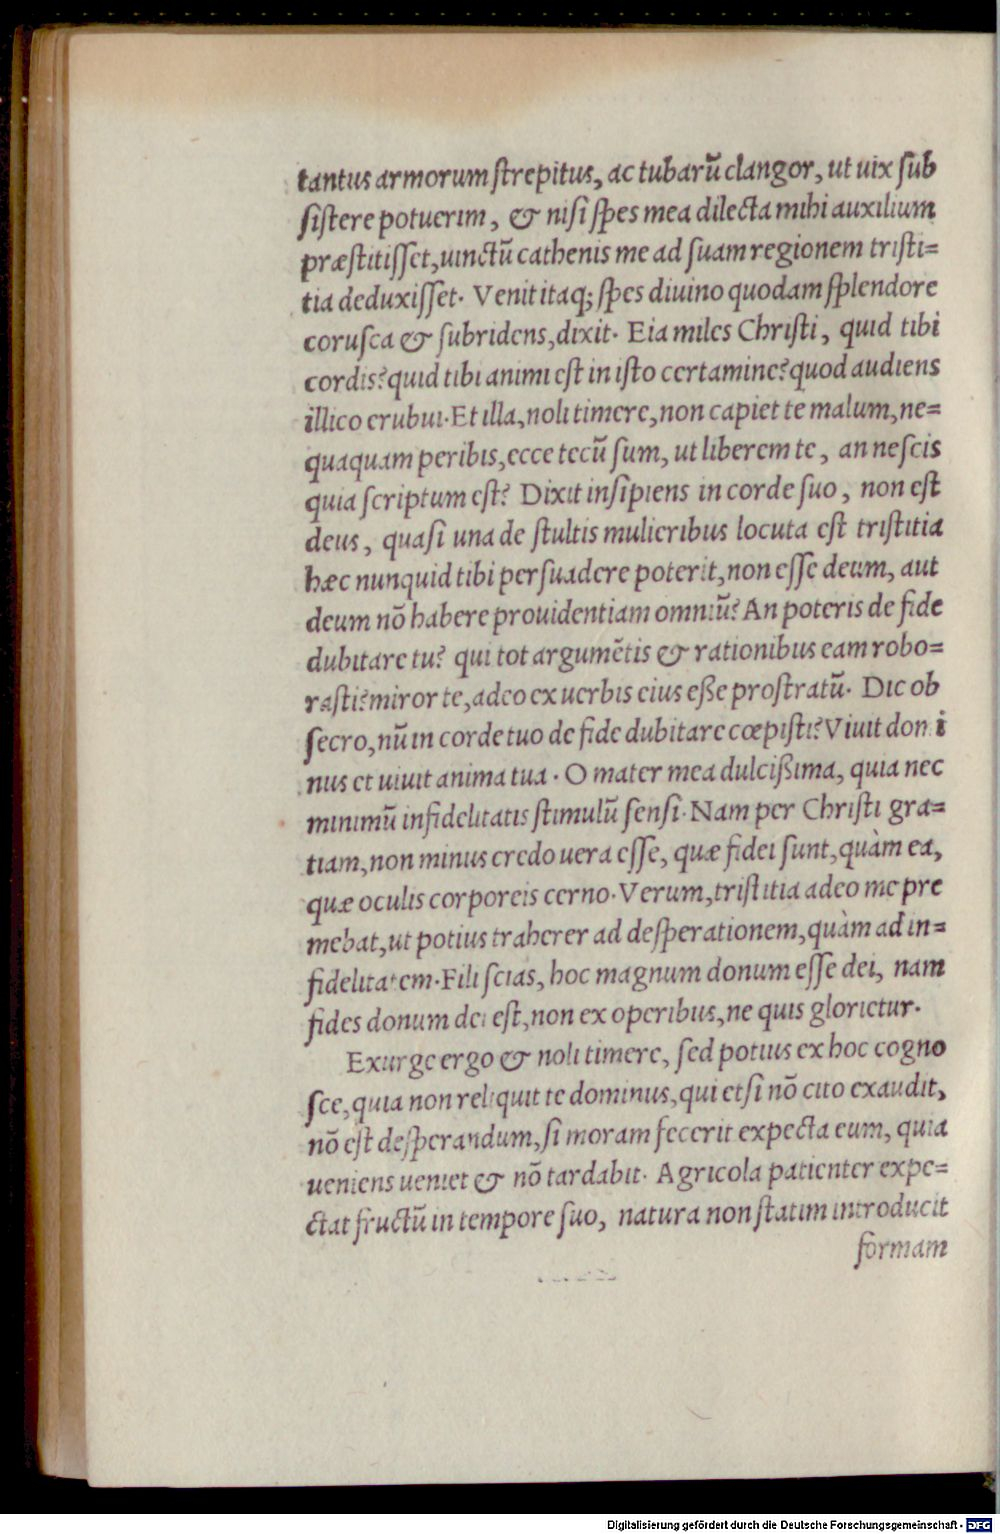 tantus armorum ſtrepitus, ac tubarũ clangor, ut uix ſub
ſiſtere potuerim, & niſi ſpes mea dilecta mihi auxilium
præſtitiſſet, uinctũ cathenis me ad ſuam regionem triſti=
tia deduxiſſet. Venit itaq; ſpes diuino quodam ſplendore
coruſca & ſubridens, dixit. Eia miles Chriſti, quid tibi
cordis? quid tibi animi eſt in iſto certamine? quod audiens
illico erubui. Et illa, noli timere, non capiet te malum, ne=
quaquam peribis, ecce tecũ ſum, ut liberem te, an neſcis
quia ſcriptum eſt? Dixit inſipiens in corde ſuo, non eſt
deus, quaſi una de ſtultis mulieribus locuta eſt triſtitia
hæc nunquid tibi perſuadere poterit, non eſſe deum, aut
deum nõ habere prouidentiam omniũ? An poteris de fide
dubitare tu? qui tot argumẽtis & rationibus eam robo=
raſti? miror te, adeo ex uerbis eius eße proſtratũ. Dic ob
ſecro, nũ in corde tuo de fide dubitare cœpiſti? Viuit don i
nus et uiuit anima tua. O mater mea dulcißima, quia nec
minimũ infidelitatis ſtimulũ ſenſi. Nam per Chriſti gra=
tiam, non minus credo uera eſſe, quæ fidei ſunt, quàm ea,
quæ oculis corporeis cerno. Verum, triſtitia adeo me pre
mebat, ut potius traherer ad deſperationem, quàm ad in=
fidelitatem. Fili ſcias, hoc magnum donum eſſe dei, nam
fides donum dei eſt, non ex operibus, ne quis glorietur.
Exurge ergo & noli timere, ſed potius ex hoc cogno
ſce, quia non reliquit te dominus, qui etſi nõ cito exaudit,
nõ eſt deſperandum, ſi moram fecerit expecta eum, quia
ueniens ueniet & nõ tardabit. Agricola patienter expe=
ctat fructũ in tempore ſuo, natura non ſtatim introducit
formam
Digitalisierung gefördert durch die Deutsche Forschungsgemeinschaft - DFG